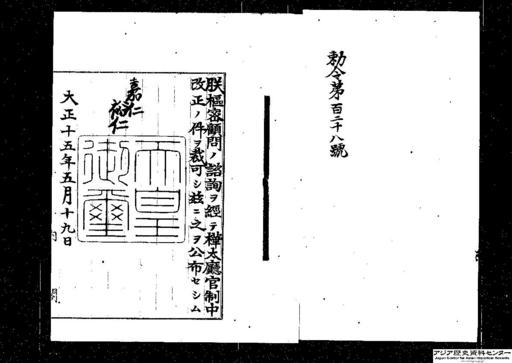 勅令第百二十八號
朕樞密顧問ノ諮詢ヲ經テ樺太廳官制中
改正ノ件ヲ裁可シ玆ニ之ヲ公布セシム
嘉仁
裕仁
天皇
御璽
大正十五年五月十九日
内閣
アジア歴史資料センター
Japan Center for Asian Historical Records